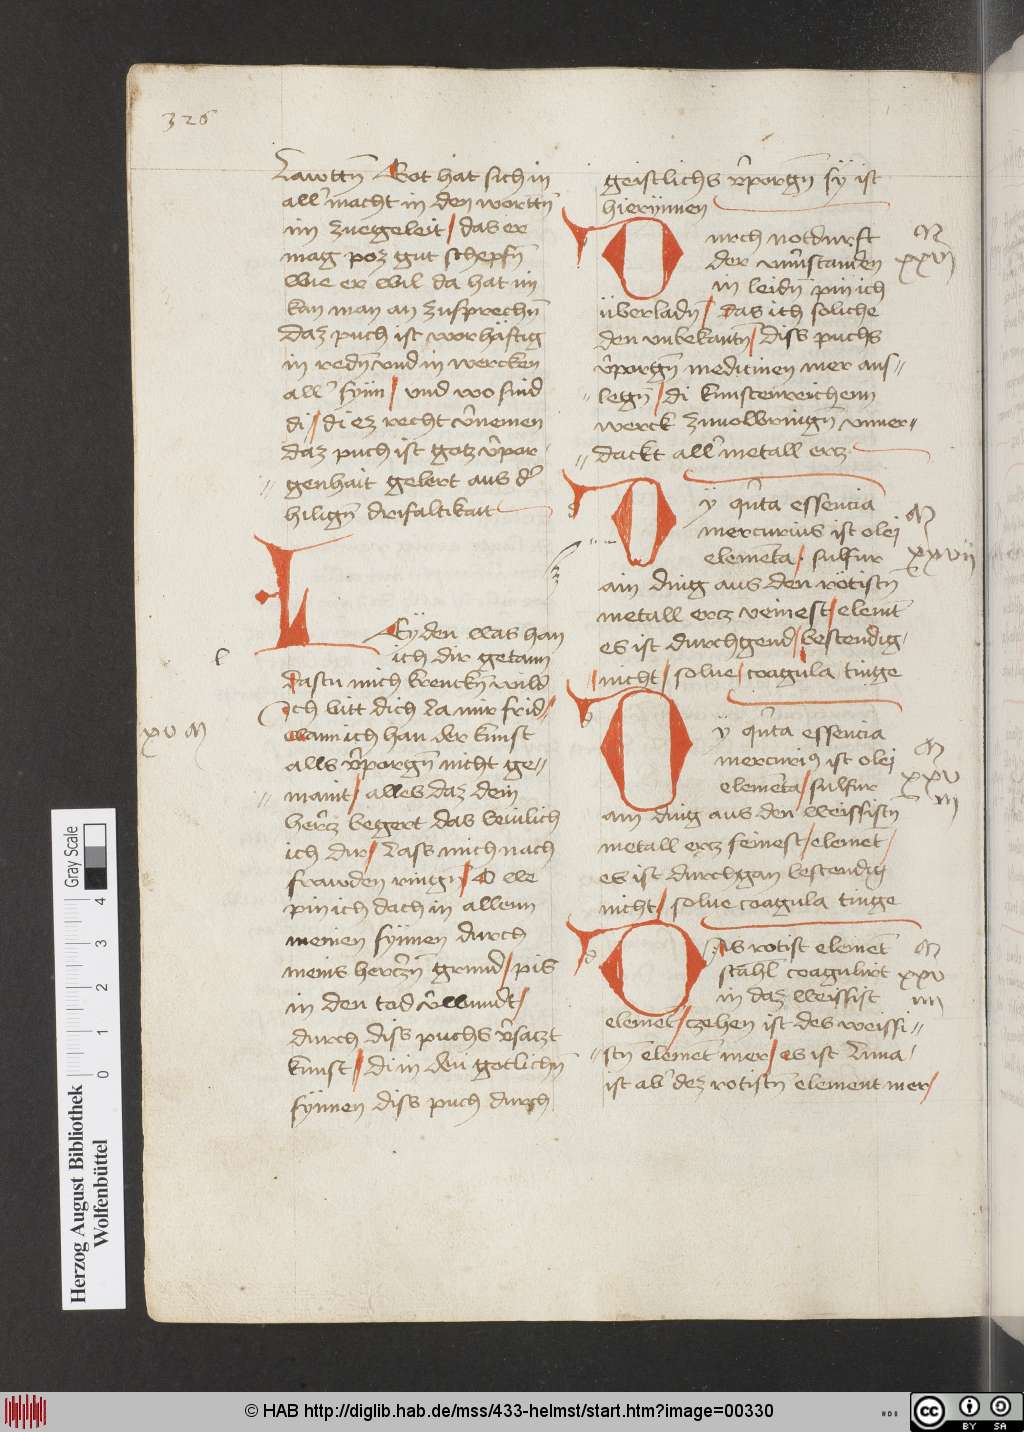 326
Lawttn̄ Got hat sich in
all' macht in den wortn̄
im zuegeleit / das er
mag poz gut schepfn̄
wie er wil da hat im
kan man an zusprechn̄
daz puch ist worhäftig
in redn̄ vnd in wercken
all' synn / vnd wo sind
di / di ez recht v'nemen
daz puch ist gotz v'por-
genhait gelert aus d'
hiligen drifaltikait
L
Eyden was han
ich dir getann
dastu mich krencken wild
Ich bitt dich la mir frid /
wann ich han der kunst
alls v'porgn̄ nicht ge-
maint / alles daz dein
hercz begert das bewilich
ich dir / Lass mich nach
frawden ringn̄ / O we
pin ich dach in allenn
meinen synnen durch
meins herczn̄ grund / pis
in den tod v'wundt /
durch diss puchs v'saczt
kunst / di in den gotlichn̄
synnen diss puch durch
xv M
geistlichs v'porgn̄ sy ist
hierynnen
D
urch notdurft
der vnu'standen
in leidn̄ pin ich
überladn̄ / das ich soliche
den vnbekantn̄ / diss puchs
v'porgn̄ medicinen mer aus-
legn̄ / di kunstenreichenn
werck zuuolbringn̄ vnuer-
dackt all' metall ercz
M
xxvj
D
y qu'nta essencia
mercurius ist olej
elementa / sulfur
ain ding aus den rötistn̄
metall ercz veinest / elemt̄
es ist durchgend / bestendig
nicht / solue / coagula tinge
M
xxvij
D
y qu'nta essencia
mercuri9 ist olej
elementa / sulfur
ain ding aus den weissistn̄
metall ercz feinest / elemet /
es ist durchgan bestendig
nicht / solue coagula tinge
M
xxv
iij
D
as rotist elemet̄
stahl coagulirt
in daz weissist
elemet / czehen ist des weissi-
stn̄ elemet̄ mer / es ist Luna /
ist ab' dez rotistn̄ element mer /
M
xxv
iiij
Herzog August Bibliothek
Wolfenbüttel
0 1 2 3 4
Gray Scale
© HAB http://diglib.hab.de/mss/433-helmst/start.htm?image=00330
HAB
cc BY SA